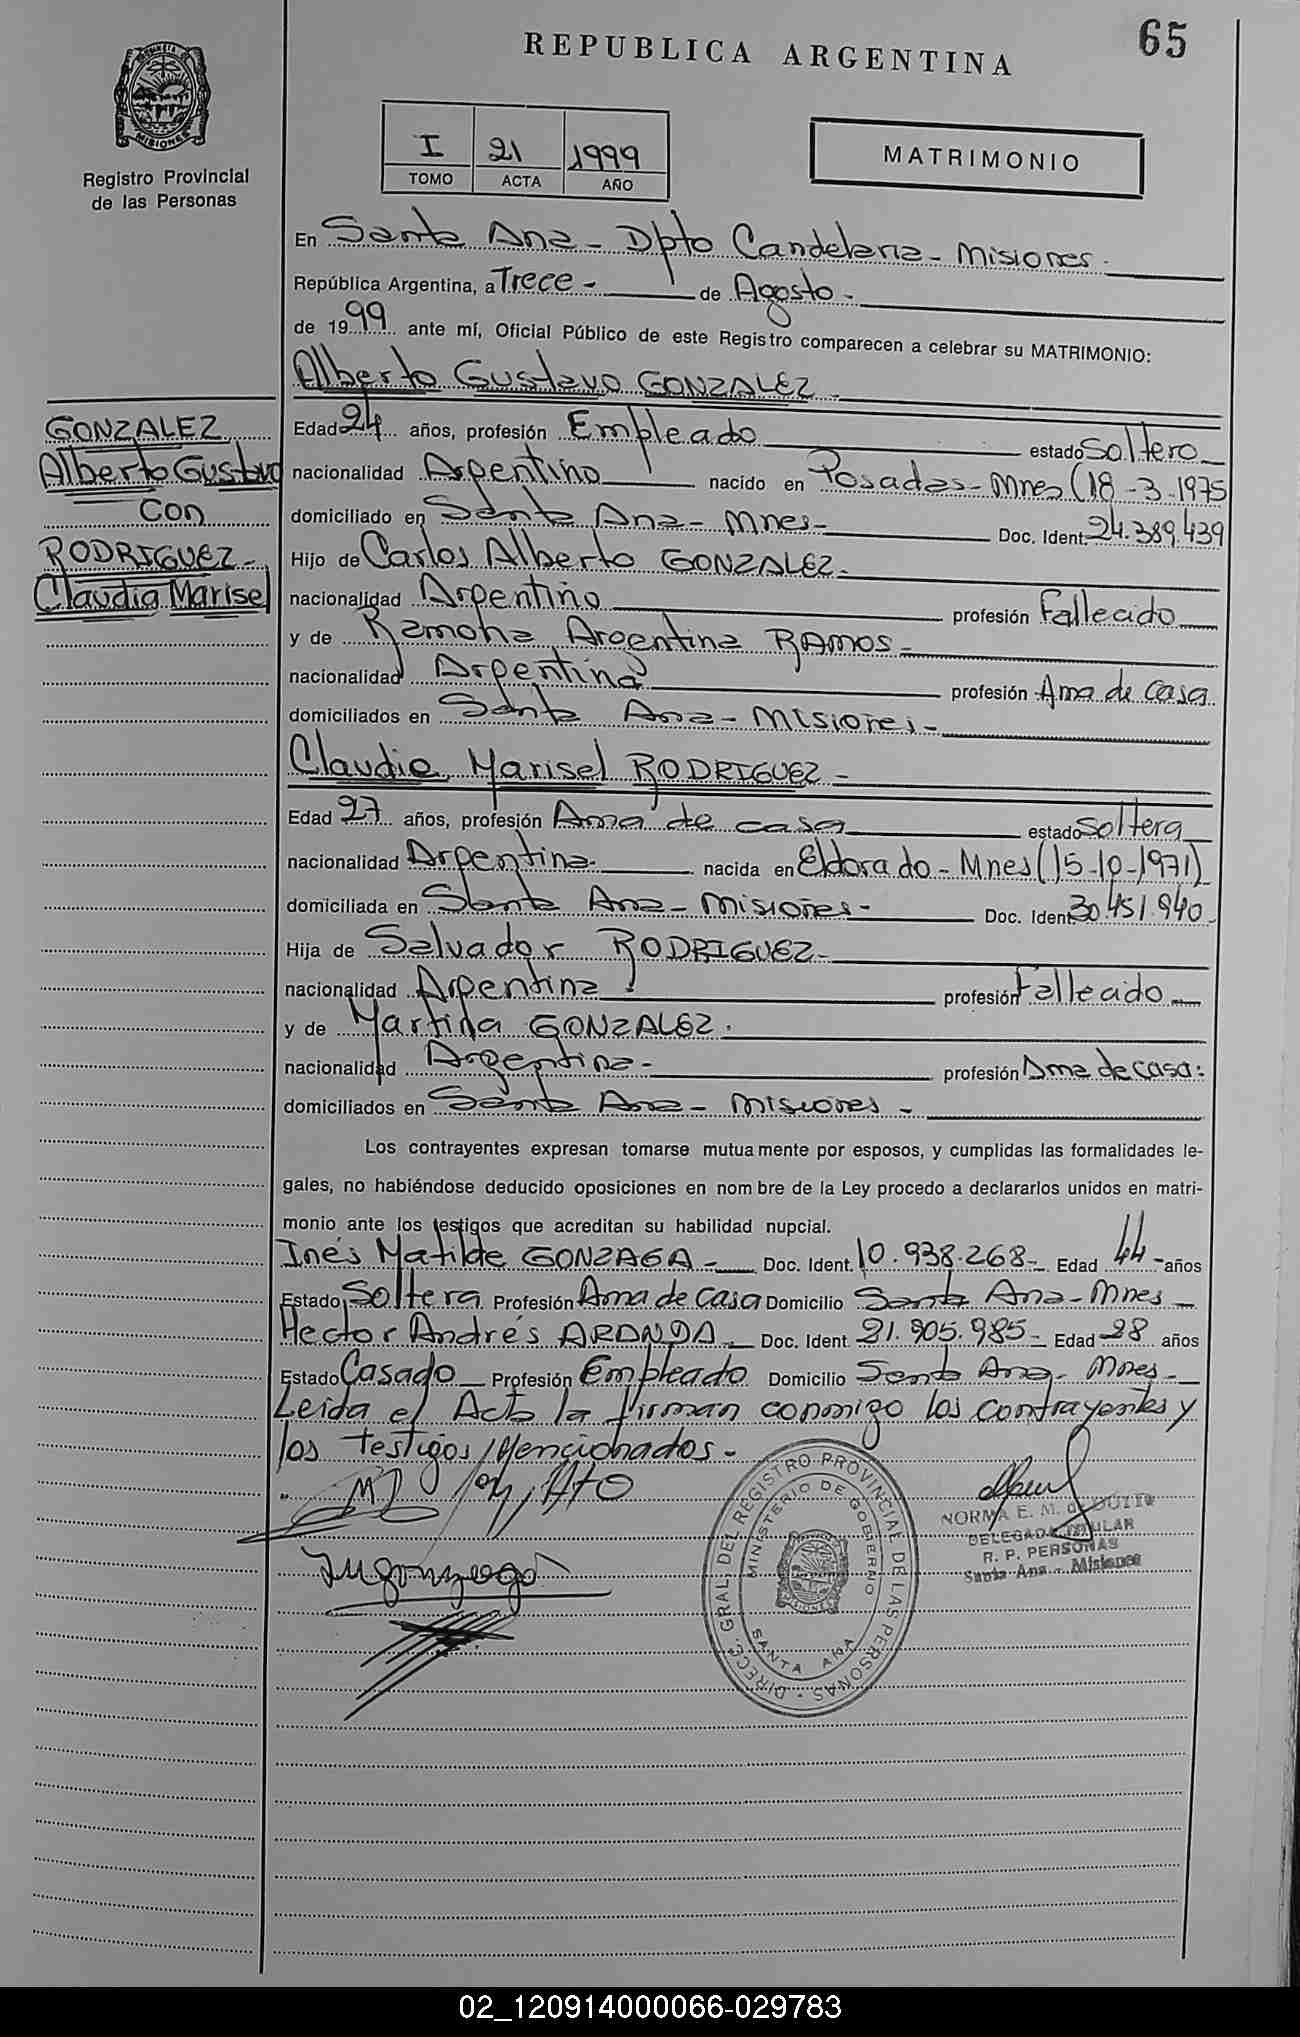 REPUBLICA ARGENTINA
65
MISIONES
Registro Provincial
de las Personas
I 21 1999
TOMO ACTA AÑO
MATRIMONIO
En Santa Ana - Dpto Candelaria - Misiones.
República Argentina, a Trece - de Agosto -
de 1999 ante mí, Oficial Público de este Registro comparecen a celebrar su MATRIMONIO:
Alberto Gustavo GONZALEZ -
GONZALEZ
Alberto Gustavo
Con
RODRIGUEZ -
Claudia Marisel
Edad 24 años, profesión Empleado estado Soltero
nacionalidad Argentino nacido en Posadas - Mnes (18-3-1975
domiciliado en Santa Ana - Mnes - Doc. Ident. 24.389.439
Hijo de Carlos Alberto GONZALEZ -
nacionalidad Argentino profesión Fallecido
y de Ramona Argentina RAMOS -
nacionalidad Argentina profesión Ama de casa
domiciliados en Santa Ana - Misiones -
Claudia Marisel RODRIGUEZ -
Edad 27 años, profesión Ama de casa estado Soltera
nacionalidad Argentina - nacida en Eldorado - Mnes (15-10-1971)
domiciliada en Santa Ana - Misiones - Doc. Ident. 30.451.940
Hija de Salvador RODRIGUEZ -
nacionalidad Argentina profesión Fallecido
y de Martina GONZALEZ.
nacionalidad Argentina - profesión Ama de casa:
domiciliados en Santa Ana - Misiones -
Los contrayentes expresan tomarse mutuamente por esposos, y cumplidas las formalidades le-
gales, no habiéndose deducido oposiciones en nombre de la Ley procedo a declararlos unidos en matri-
monio ante los testigos que acreditan su habilidad nupcial.
Inés Matilde GONZAGA - Doc. Ident. 10.938.268 - Edad 44 - años
Estado Soltera Profesión Ama de casa Domicilio Santa Ana - Mnes -
Hector Andrés ARANDA - Doc. Ident. 21.905.985 - Edad 28 años
Estado Casado Profesión Empleado Domicilio Santa Ana - Mnes -
Leida el Acta la firman conmigo los contrayentes y
los testigos Mencionados -
DIRECC. GRAL. DEL REGISTRO PROVINCIAL DE LAS PERSONAS
MINISTERIO DE GOBIERNO
SANTA ANA
NORMA E. M. de
DELEGADA TITULAR
R. P. PERSONAS
Santa Ana - Misiones
02_120914000066-029783